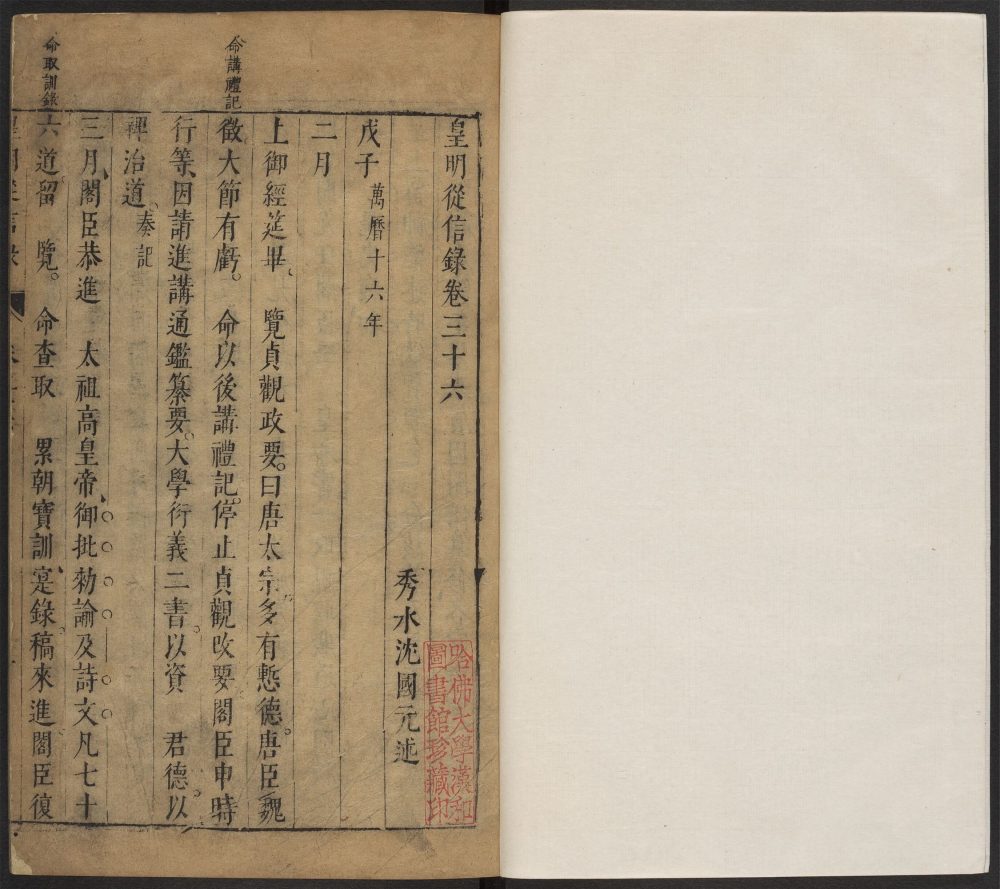 皇明從信錄卷三十六
秀水沈國元述
戊子 萬曆十六年
二月
上御經筵畢、 覽貞觀政要。曰唐太宗多有慙德。唐臣魏
徵大節有虧。 命以後講禮記。停止貞觀政要閣臣申時
行等、因請進講通鑑纂要。大學衍義二書。以資 君德。以
裨治道。奏記
三月、閣臣恭進 太祖高皇帝、御批勑諭及詩文凡七十
六道留 覽。 命查取 累朝寶訓、寔錄稿來進閣臣復
命講禮記
命取訓錄
哈佛大學漢和
圖書館珍藏印